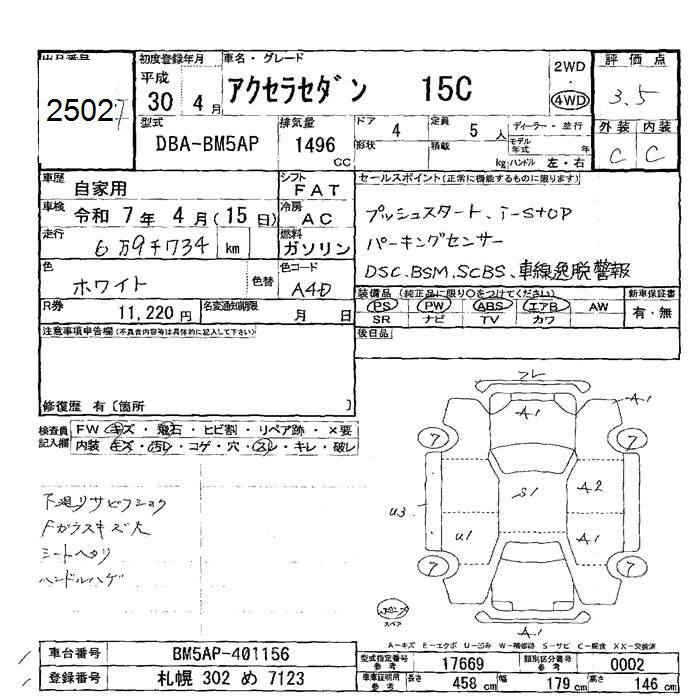 25027
初度登録年月
平成
30年 4月
車名・グレード
アクセラセダン 15C
2WD
4WD
評価点
3.5
型式
DBA-BM5AP
排気量
1496 CC
ドア 4
定員 5人
形状
積載 kg
ディーラー・並行
モデル年式 年
ハンドル 左・右
外装 内装
C C
車歴 自家用
シフト FAT
車検 令和 7年 4月(15日)
冷房 AC
走行 6万9千734 km
燃料 ガソリン
色 ホワイト 色替
色コード A4D
R券 11,220円
名変通知期限 月 日
セールスポイント(正常に機能するものに限ります)
プッシュスタート、i-STOP
パーキングセンサー
DSC.BSM.SCBS、車線逸脱警報
装備品(純正品に限り○をつけてください)
PS PW ABS エアB AW
SR ナビ TV カワ
新車保証書
有・無
後日品
注意事項申告欄(不具合内容等は具体的に記入して下さい)
修復歴 有〔箇所 〕
検査員記入欄
FW キズ・飛石・ヒビ割・リペア跡・×要
内装 キズ・汚レ・コゲ・穴・スレ・キレ・破レ
下廻リサビフショク
Fガラスキズ大
シートヘタリ
ハンドルハゲ
フレ
A1
A1
7
7
S1
A2
U3
U1
A1
7
7
スペア
A1
A-キズ E-エクボ U-凹み W-補修跡 S-サビ C-腐食 XX-交換済
車台番号 BM5AP-401156
登録番号 札幌 302 め 7123
型式指定番号 参考 17669
類別区分番号 参考 0002
車庫証明用 参考 長さ 458cm 幅 179cm 高さ 146cm